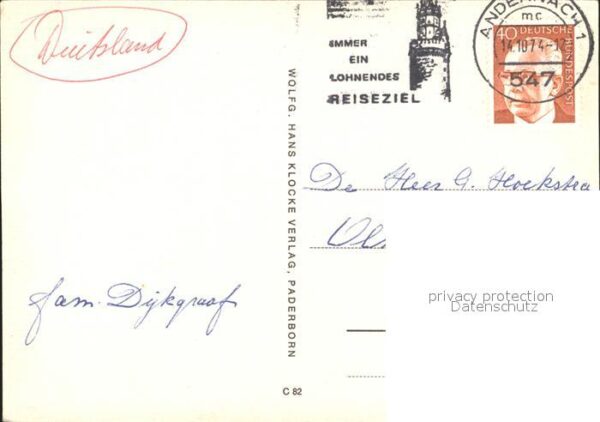 Duitsland
IMMER
EIN
LOHNENDES
REISEZIEL
ANDERNACH 1
mc
14.10.74-12
547
40 DEUTSCHE
BUNDESPOST
WOLFG. HANS KLOCKE VERLAG, PADERBORN
De Heer G. Hoekstra
fam. Dijkgraaf
privacy protection
Datenschutz
C 82